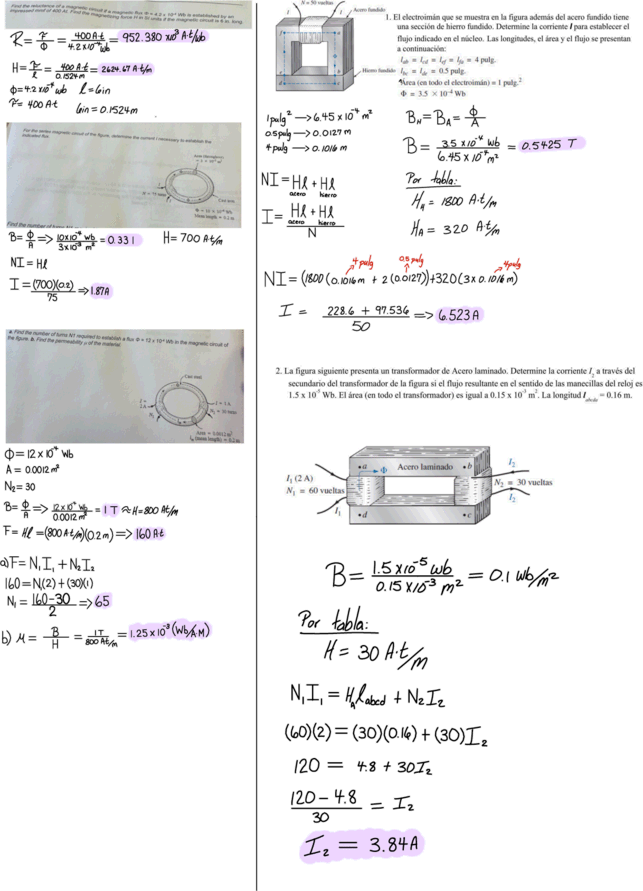 Find the reluctance of a magnetic circuit if a magnetic flux Φ = 4.2 x 10⁻⁴ Wb is established by an
impressed mmf of 400 At. Find the magnetizing force H in SI units if the magnetic circuit is 6 in. long.
R = F/Φ = 400 A·t / 4.2x10⁻⁴ Wb = 952.380 x10³ A·t/Wb
H = F/l = 400 A·t / 0.1524m = 2624.67 A·t/m
Φ=4.2x10⁻⁴ wb l=6in
F= 400 A·t 6in = 0.1524m
For the series magnetic circuit of the figure, determine the current I necessary to establish the
indicated flux.
Area (throughout)
= 3 × 10⁻³ m²
N = 75 turns
Cast iron
Φ = 10 × 10⁻⁴ Wb
Mean length = 0.2 m
Find the number of turns N1
B= Φ/A => 10x10⁻⁴ wb / 3x10⁻³ m² = 0.331 H= 700 A·t/m
NI = Hl
I = (700)(0.2) / 75 => 1.87A
a. Find the number of turns N1 required to establish a flux Φ = 12 x 10⁻⁴ Wb in the magnetic circuit of
the figure. b. Find the permeability μ of the material.
Cast steel
I = 2 A
I = 1 A
N₁
N₂ = 30 turns
Area = 0.0012 m²
lₘ (mean length) = 0.2 m
Φ = 12x10⁻⁴ Wb
A = 0.0012 m²
N₂ = 30
B= Φ/A => 12x10⁻⁴ wb / 0.0012 m² = 1 T ≈ H=800 At/m
F= Hl =(800 At/m)(0.2m) => 160 A·t
a) F= N₁I₁ + N₂I₂
160=N₁(2) + (30)(1)
N₁ = 160-30 / 2 => 65
b) μ = B/H = 1T / 800 At/m = 1.25 x 10⁻³ (Wb/A·M)
N = 50 vueltas
I I
Acero fundido
Hierro fundido
a b c d e f
1. El electroimán que se muestra en la figura además del acero fundido tiene
una sección de hierro fundido. Determine la corriente I para establecer el
flujo indicado en el núcleo. Las longitudes, el área y el flujo se presentan
a continuación:
l_ab = l_cd = l_ef = l_fa = 4 pulg.
l_bc = l_de = 0.5 pulg.
Área (en todo el electroimán) = 1 pulg.²
Φ = 3.5 × 10⁻⁴ Wb
1 pulg² → 6.45 x 10⁻⁴ m²
0.5 pulg → 0.0127 m
4 pulg → 0.1016 m
B_H = B_A = Φ/A
B = 3.5 x10⁻⁴ Wb / 6.45 x10⁻⁴ m² = 0.5425 T
NI = Hl + Hl
acero hierro
I = Hl + Hl / N
acero hierro
Por tabla:
H_H = 1800 A·t/m
H_A = 320 A·t/m
4 pulg 0.5 pulg 4 pulg
NI = (1800 (0.1016 m + 2 (0.0127))+320 (3 x 0.1016 m)
I = 228.6 + 97.536 / 50 => 6.523 A
2. La figura siguiente presenta un transformador de Acero laminado. Determine la corriente I₂ a través del
secundario del transformador de la figura si el flujo resultante en el sentido de las manecillas del reloj es
1.5 x 10⁻⁵ Wb. El área (en todo el transformador) es igual a 0.15 x 10⁻³ m². La longitud l_abcda = 0.16 m.
a Φ Acero laminado b
I₁ (2 A)
N₁ = 60 vueltas
I₁
I₂
N₂ = 30 vueltas
I₂
d c
B = 1.5 x10⁻⁵ wb / 0.15 x10⁻³ m² = 0.1 wb/m²
Por tabla:
H = 30 A·t/m
N₁I₁ = H_A l_abcd + N₂I₂
(60)(2) = (30)(0.16) + (30)I₂
120 = 4.8 + 30I₂
120 - 4.8 / 30 = I₂
I₂ = 3.84A